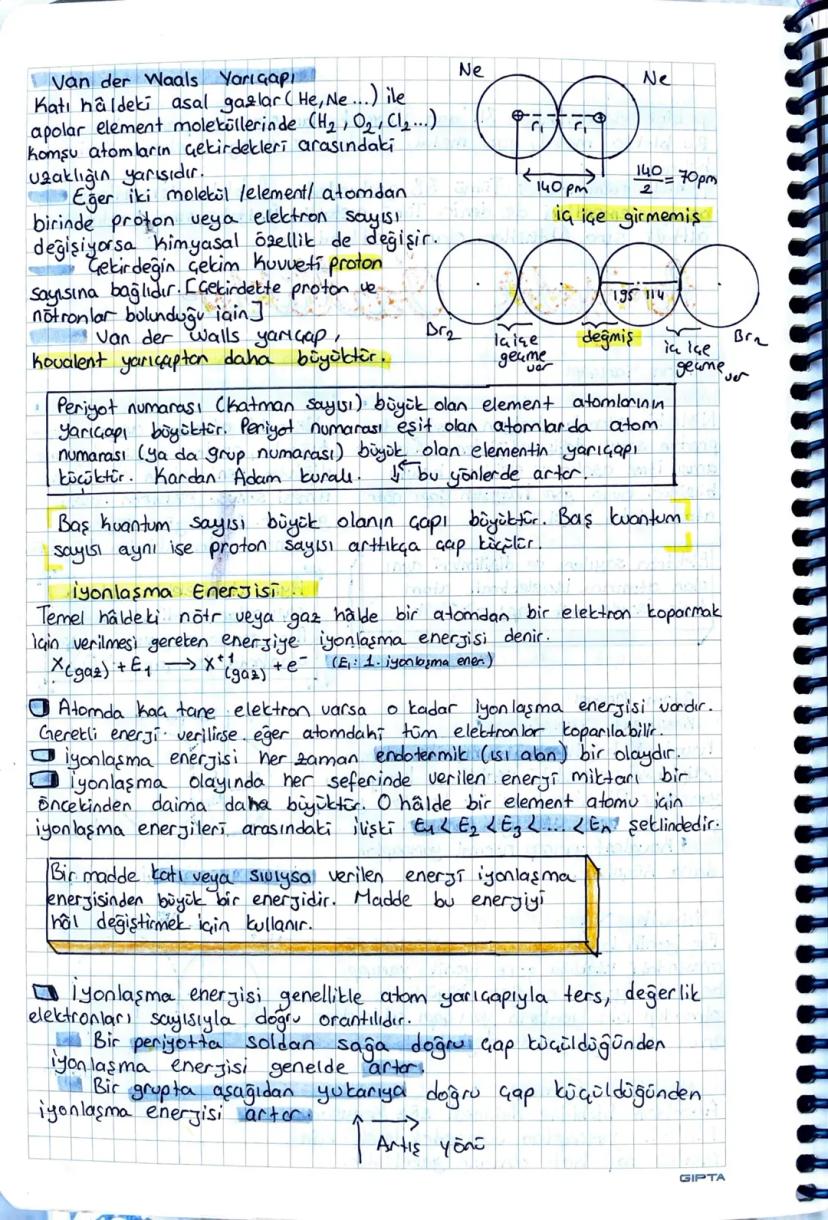 Van der Waals Yarıçapı
Katı hâldeki asal gazlar (He, Ne ...) ile
apolar element moleküllerinde (H₂, O₂, Cl₂...)
komşu atomların çekirdekleri arasındaki
uzaklığın yarısıdır.
Ne
Ne
r₁ r₁
140 pm
140/2 = 70pm
iç içe girmemiş
Eğer iki molekül /element/ atomdan
birinde proton veya elektron sayısı
değişiyorsa kimyasal özellik de değişir.
Çekirdeğin çekim kuvveti proton
sayısına bağlıdır. [Çekirdekte proton ve
nötronlar bolunduğu için]
Van der Walls yarıçap,
kovalent yarıçaptan daha büyüktür.
195 114
Br₂
iç içe geçme var
değmiş
iç içe geçme var
Br₂
Periyot numarası (katman sayısı) büyük olan element atomlarının
yarıçapı büyüktür. Periyot numarası eşit olan atomlarda atom
numarası (ya da grup numarası) büyük olan elementin yarıçapı
küçüktür. Kardan Adam kuralı. ↓← bu yönlerde artar.
Baş kuantum sayısı büyük olanın çapı büyüktür. Baş kuantum
sayısı aynı ise proton sayısı arttıkça çap küçülür.
İyonlaşma Enerjisi
Temel hâldeki nötr veya gaz hâlde bir atomdan bir elektron koparmak
için verilmesi gereken enerjiye iyonlaşma enerjisi denir.
X(gaz) + E₁ → X⁺¹(gaz) + e⁻ (E₁: 1. iyonlaşma ener.)
Atomda kaç tane elektron varsa o kadar iyonlaşma enerjisi vardır.
Gerekli enerji verilirse eğer atomdaki tüm elektronlar koparılabilir.
iyonlaşma enerjisi her zaman endotermik (ısı alan) bir olaydır.
iyonlaşma olayında her seferinde verilen enerji miktarı bir
öncekinden daima daha büyüktür. O hâlde bir element atomu için
iyonlaşma enerjileri arasındaki ilişki E₁ < E₂ < E₃ < ... < Eₙ şeklindedir.
Bir madde katı veya sıvıysa verilen enerji iyonlaşma
enerjisinden büyük bir enerjidir. Madde bu enerjiyi
hâl değiştirmek için kullanır.
İyonlaşma enerjisi genellikle atom yarıçapıyla ters, değerlik
elektronları sayısıyla doğru orantılıdır.
Bir periyotta soldan sağa doğru çap küçüldüğünden
iyonlaşma enerjisi genelde artar.
Bir grupta aşağıdan yukarıya doğru çap küçüldüğünden
iyonlaşma enerjisi artar.
↑→
Artış yönü
GIPTA